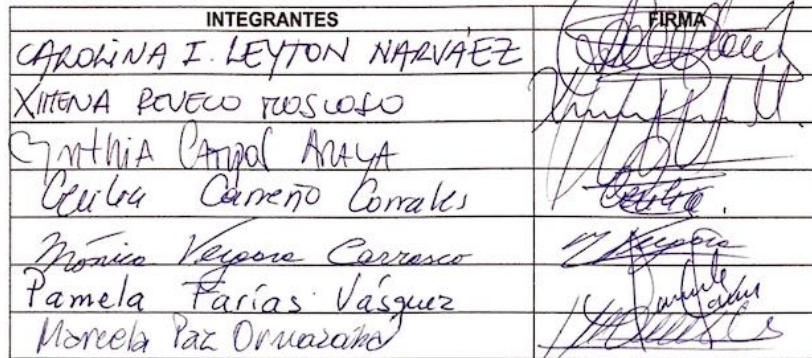 INTEGRANTES FIRMA
CAROLINA I. LEYTON NARVÁEZ
XIMENA REVECO MOSCOSO
CYNTHIA CAMPOS ARAYA
Cecilia Carreño Corrales Cecilia
Mónica Vergara Carrasco M Vergara
Pamela Farías Vásquez Pamela Farías
Marcela Paz Ormazábal